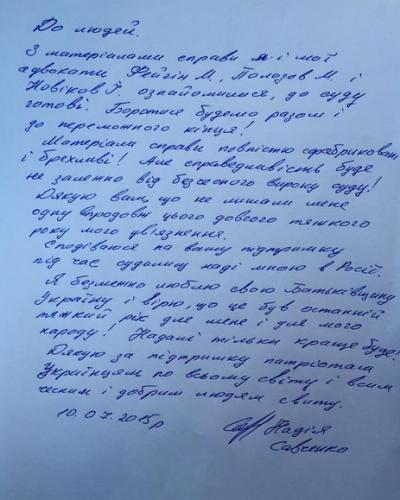 До людей.
З матеріалами справи я і мої
адвокати Фейгін М., Полозов М. і
Новіков І. ознайомилися, до суду
готові. Боротися будемо разом і
до переможного кінця!
Матеріали справи повністю сфабриковані
і брехливі! Але справедливість буде
не залежно від безчесного вироку суду!
Дякую вам, що не лишали мене
одну впродовж цього довгого тяжкого
року мого ув'язнення.
Сподіваюся на вашу підтримку
під час судилищ наді мною в Росії.
Я безмежно люблю свою Батьківщину
Україну і вірю, що це був останній
тяжкий рік для мене і для мого
народу! Надалі тільки краще буде!
Дякую за підтримку патріотам
Українцям по всьому світу і всим
чесним і добрим людям світу.
10.07.2015р
Надія
Савченко